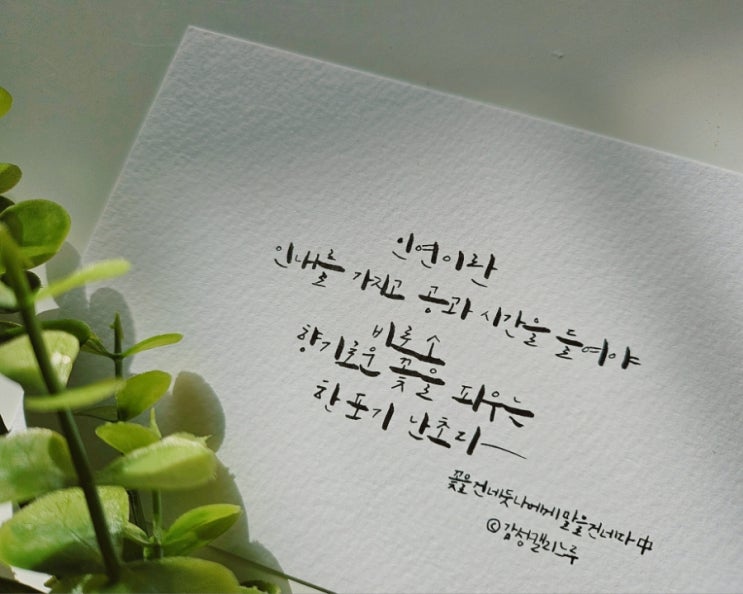 인연이란
인내를 가지고 공과 시간을 들여야
비로소
향기로운 꽃을 피우는
한 포기 난초다
꽃을건네듯나에게말을건네다 中
©감성캘리노루